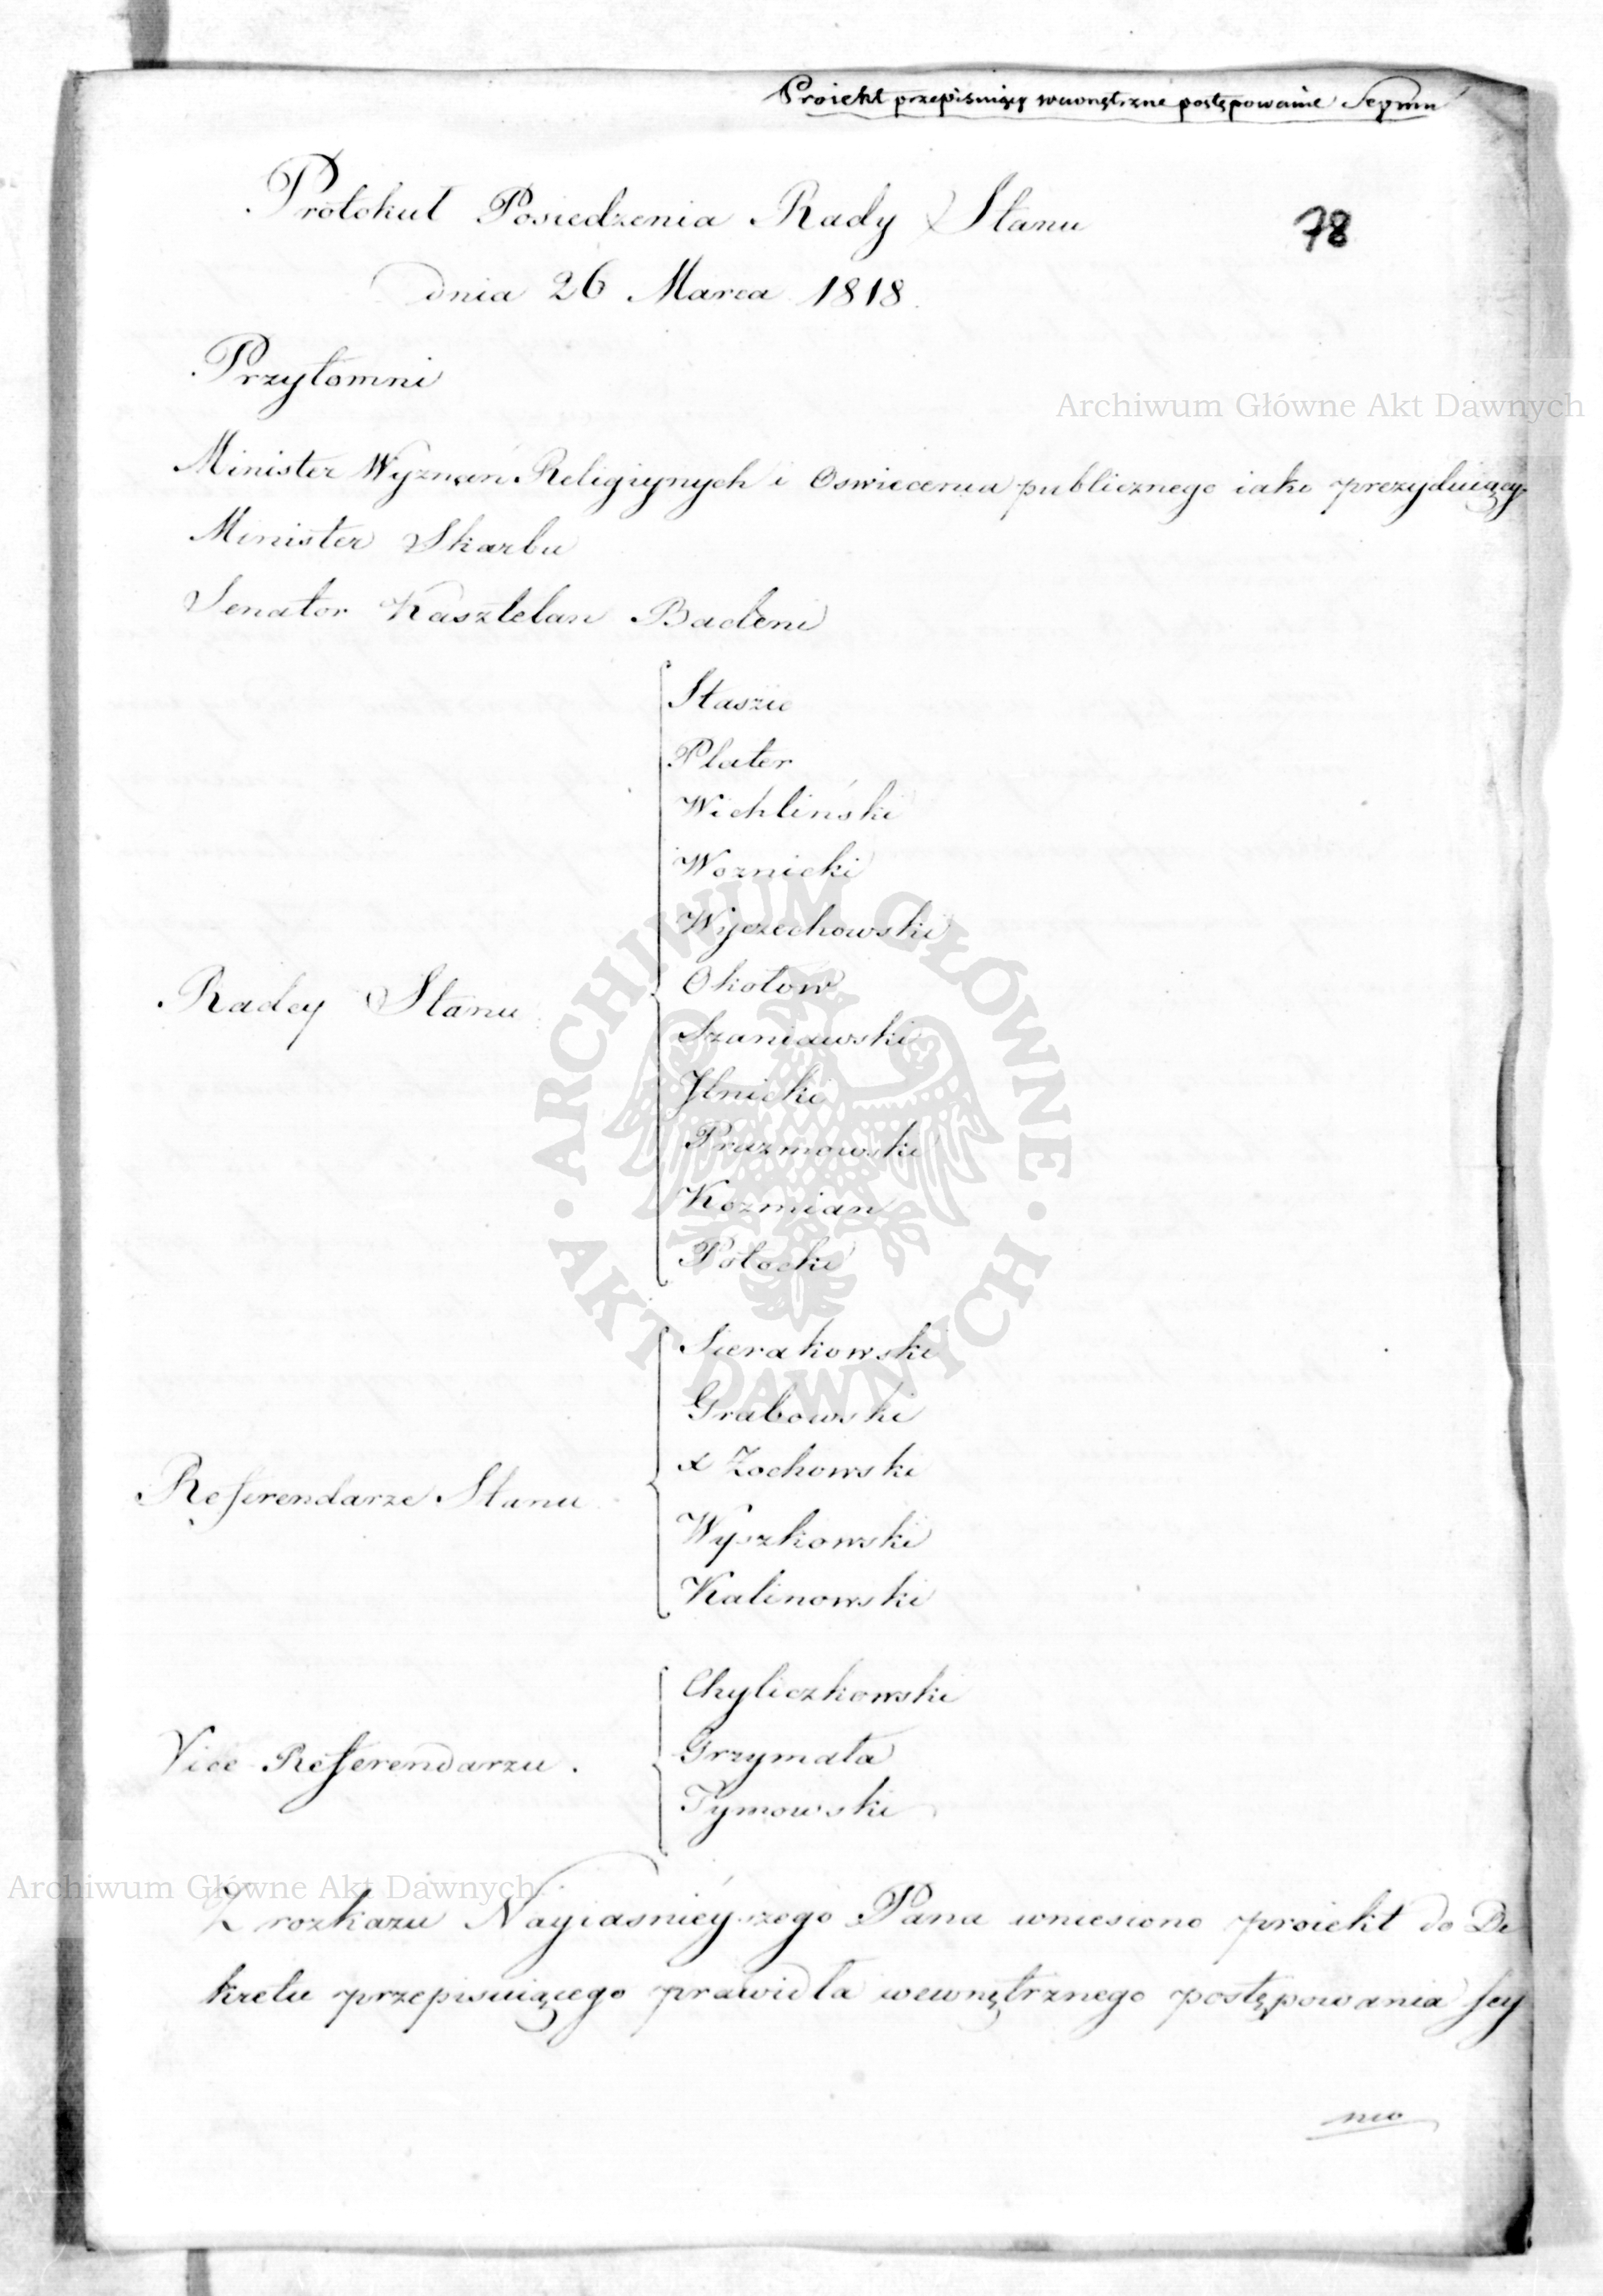 Proiekt przepisuiący wewnętrzne postępowanie Seymu
Protokuł Posiedzenia Rady Stanu
78
dnia 26 Marca 1818.
Przytomni
Archiwum Główne Akt Dawnych
Minister Wyznań Religiynych i Oswiecenia publicznego iako prezyduiący
Minister Skarbu
Senator Kasztelan Badeni
Radcy Stanu
Staszic
Plater
Wichliński
Woznicki
Wyczechowski
Okołow
Szaniawski
Jlnicki
Prazmowski
Kozmian
Potocki
ARCHIWUM GŁÓWNE AKT DAWNYCH
Referendarze Stanu
Sierakowski
Grabowski
x Zochowski
Wyszkowski
Kalinowski
Vice-Referendarzu.
Chyliczkowski
Grzymała
Tymowski
Archiwum Główne Akt Dawnych
Z rozkazu Nayiasnieyszego Pana wniesiono proiekt do De
kretu przepisuiącego prawidła wewnętrznego postępowania sey
mo